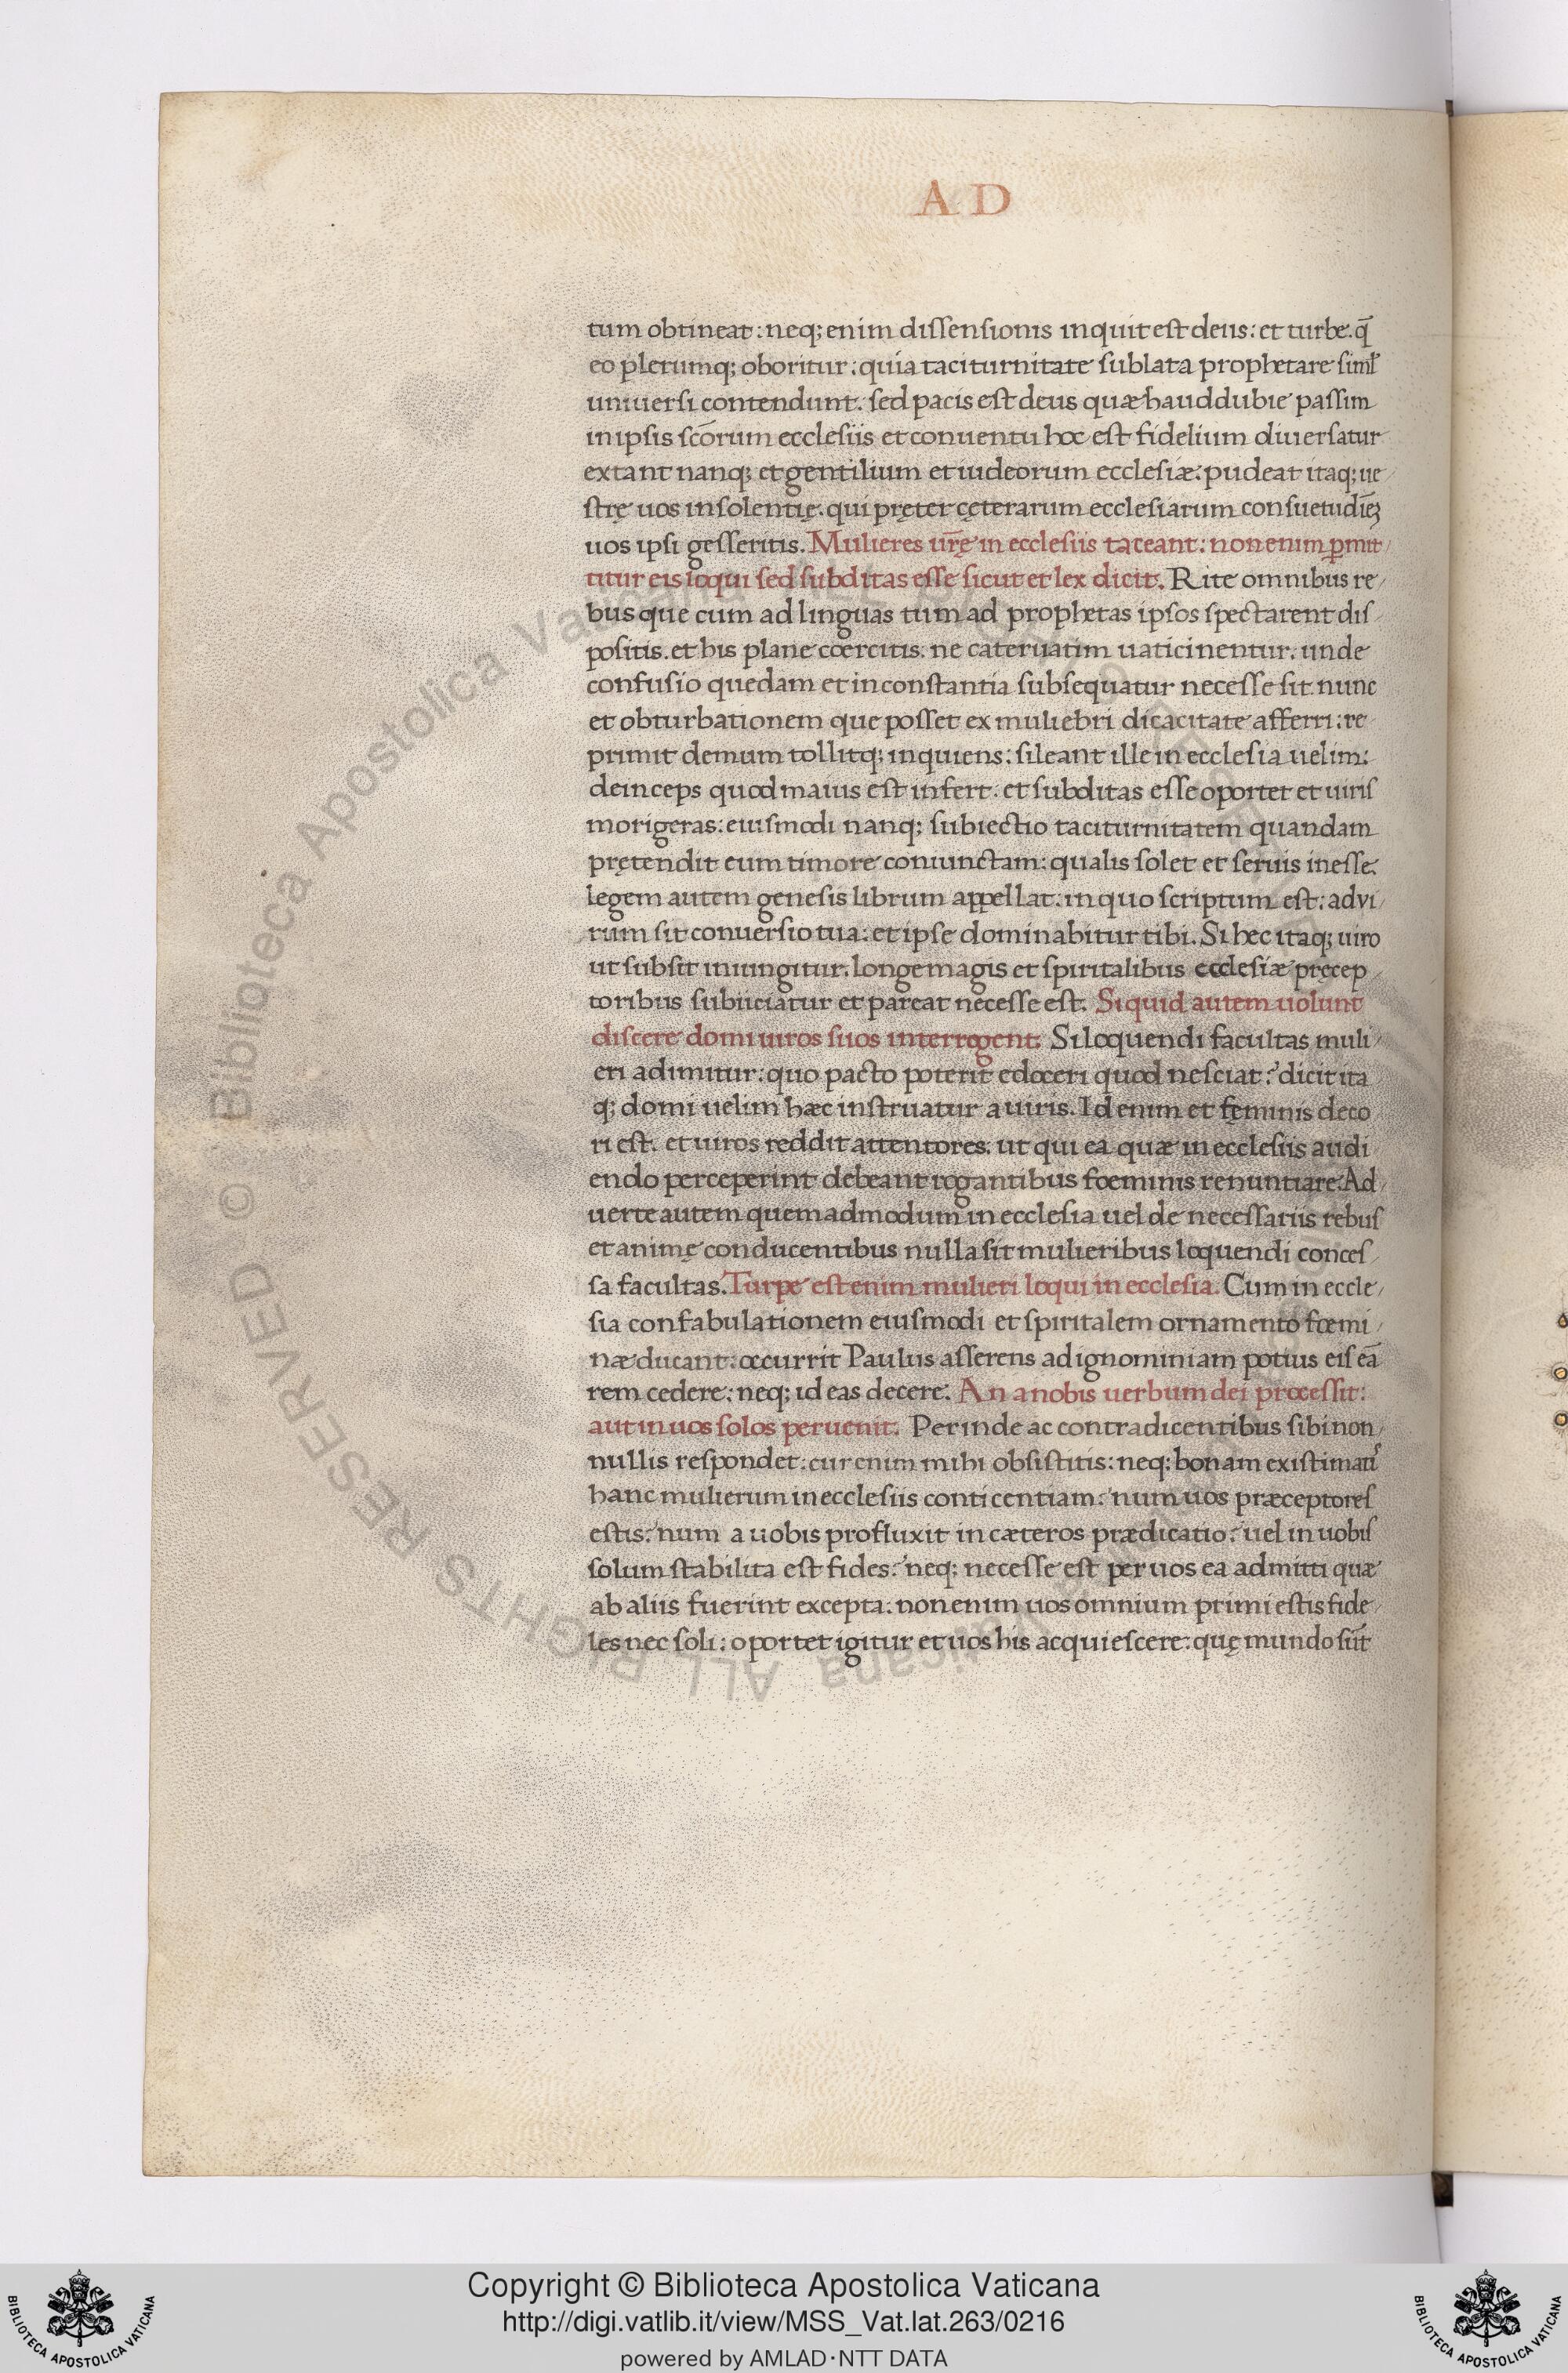 A D
tum obtineat: neq; enim dissensionis inquit est deus: et turbe. q̄
eo plerumq; oboritur: quia taciturnitate sublata prophetare siml̄
uniuersi contendunt. sed pacis est deus quæ hauddubie passim
in ipsis scōrum ecclesiis et conuentu hoc est fidelium diuersatur
extant nanq; et gentilium et iudeorum ecclesiæ: pudeat itaq; ue
strę uos insolentię. qui pręter cęterarum ecclesiarum consuetudīeȝ
uos ipsi gesseritis. Mulieres ur̄ę in ecclesiis taceant: non enim ꝑmit
titur eis loqui sed subditas esse sicut et lex dicit. Rite omnibus re
bus que cum ad linguas tum ad prophetas ipsos spectarent dis
positis. et his plane coercitis. ne cateruatim uaticinentur. unde
confusio quedam et inconstantia subsequatur necesse sit. nunc
et obturbationem que posset ex muliebri dicacitate afferri: re
primit demum tollitq; inquiens: sileant ille in ecclesia uelim:
deinceps quod maius est infert. et subditas esse oportet et uiris
morigeras: eiusmodi nanq; subiectio taciturnitatem quandam
prętendit cum timore coniunctam: qualis solet et seruis inesse.
legem autem genesis librum appellat. in quo scriptum est: ad vi
rum sit conuersio tua: et ipse dominabitur tibi. Si hec itaq; uiro
ut subsit iniungitur. longe magis et spiritalibus ecclesiæ pręcep
toribus subiiciatur et pareat necesse est. Si quid autem uolunt
discere domi uiros suos interrogent. Si loquendi facultas muli
eri adimitur: quo pacto poterit edoceri quod nesciat? dicit ita
q; domi uelim hæc instruatur a uiris. Id enim et fęminis deco
ri est. et uiros reddit attentores. ut qui ea quæ in ecclesiis audi
endo perceperint debeant rogantibus foeminis renuntiare. Ad
uerte autem quemadmodum in ecclesia uel de necessariis rebus
et animę conducentibus nulla sit mulieribus loquendi conces
sa facultas. Turpe est enim mulieri loqui in ecclesia. Cum in eccle
sia confabulationem eiusmodi et spiritalem ornamento fœmi
næ ducant: occurrit Paulus asserens ad ignominiam potius eis eā
rem cedere: neq; id eas decere. An a nobis uerbum dei processit:
aut in uos solos peruenit. Perinde ac contradicentibus sibi non
nullis respondet: cur enim mihi obsistitis: neq; bonam existimati
hanc mulierum in ecclesiis conticentiam? num uos præceptores
estis? num a uobis profluxit in cæteros prædicatio? uel in uobis
solum stabilita est fides? neq; necesse est per uos ea admitti quæ
ab aliis fuerint excepta: non enim uos omnium primi estis fide
les nec soli: oportet igitur et uos his acquiescere: quę mundo sūt
© Biblioteca Apostolica Vaticana ALL RIGHTS RESERVED
Copyright © Biblioteca Apostolica Vaticana
http://digi.vatlib.it/view/MSS_Vat.lat.263/0216
powered by AMLAD·NTT DATA
BIBLIOTECA APOSTOLICA VATICANA
BIBLIOTECA APOSTOLICA VATICANA